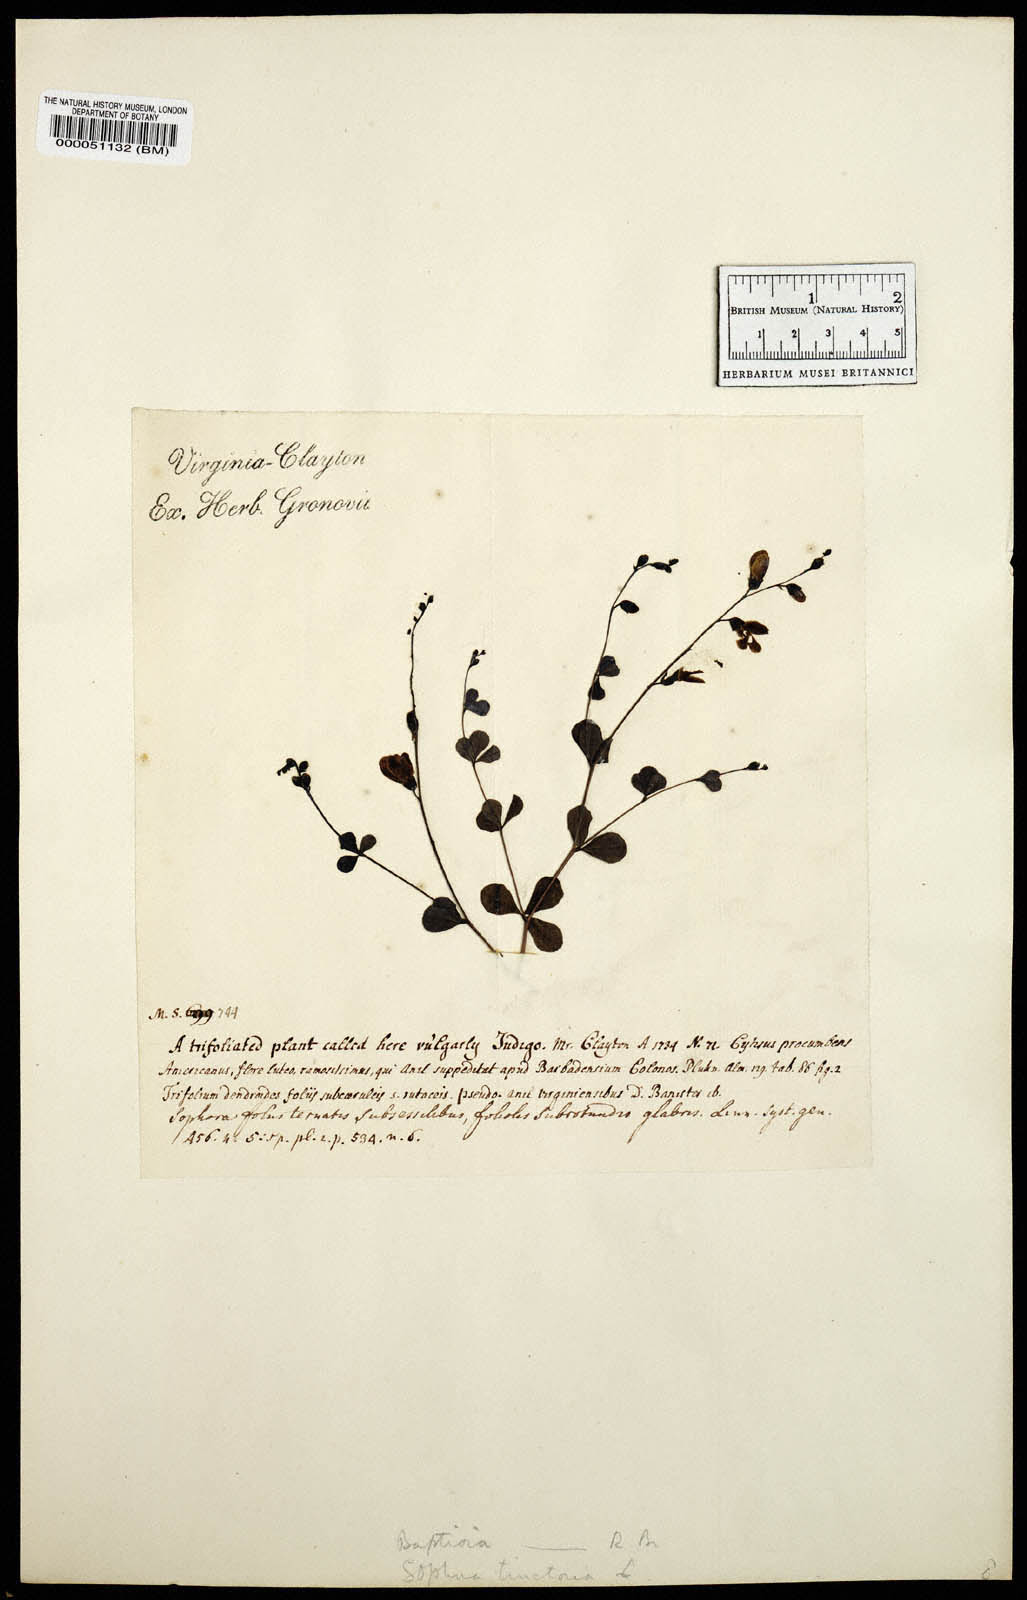 THE NATURAL HISTORY MUSEUM, LONDON
DEPARTMENT OF BOTANY
000051132 (BM)
1 2
BRITISH MUSEUM (NATURAL HISTORY)
1 2 3 4 5
HERBARIUM MUSEI BRITANNICI
Virginia-Clayton
Ex. Herb. Gronovii
M. S. 699 744
A trifoliated plant called here vulgarly Indigo. Mr. Clayton A 1734 N. 71 Cytisus procumbens
Americanus, flore luteo, ramosissimus, qui Anil suppeditat apud Barbadensium Colonos. Plukn. Alm. 129. tab. 86 fig. 2
Trifolium dendroides foliis subcæruleis s. rutaceis. pseudo-anil virginiensibus D. Banister ib.
Sophora foliis ternatis subsessilibus, foliolis subrotundis glabris. Linn. Syst. gen.
456. n. 5: sp. pl. 2. p. 534. n. 6.
Baptisia —— R Br
Sophora tinctoria L
8